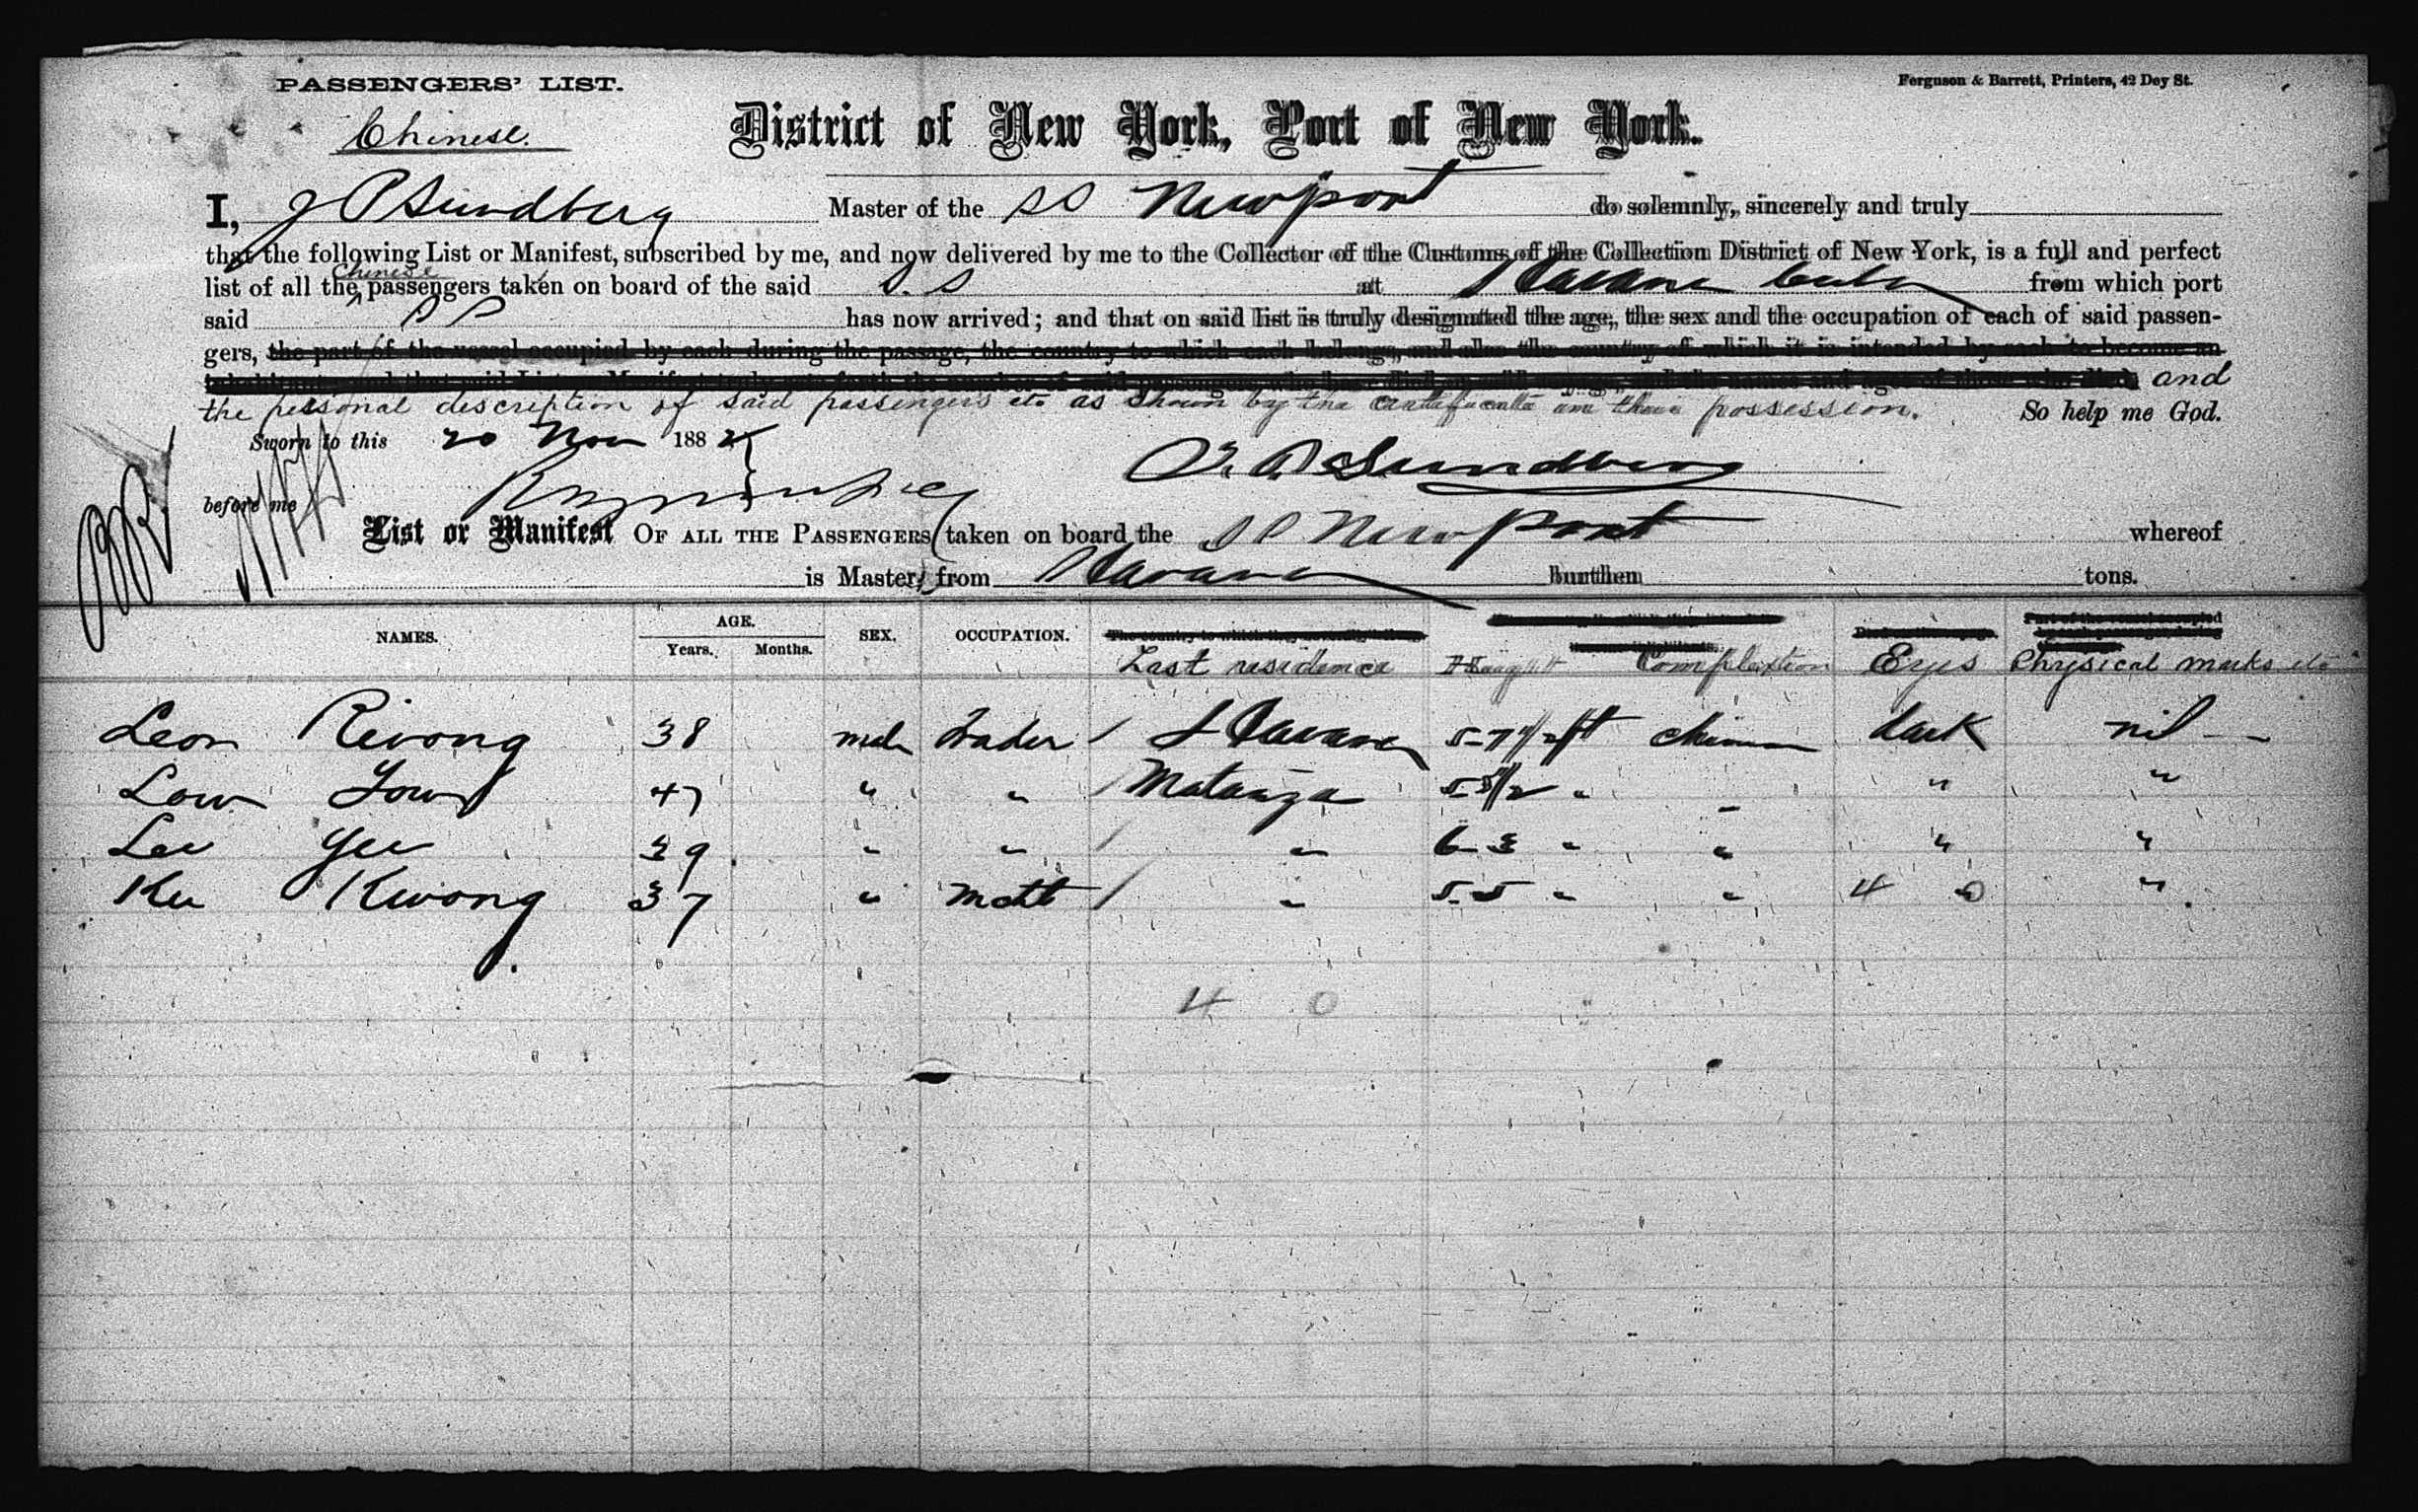 PASSENGERS' LIST.
Ferguson & Barrett, Printers, 42 Dey St.
Chinese.
District of New York, Port of New York.
I, J P Sundberg Master of the SS Newport do solemnly, sincerely and truly
that the following List or Manifest, subscribed by me, and now delivered by me to the Collector of the Customs of the Collection District of New York, is a full and perfect
Chinese
list of all the passengers taken on board of the said S.S at Havana Cuba from which port
said SS has now arrived; and that on said list is truly designated the age, the sex and the occupation of each of said passen-
gers, the part of the vessel occupied by each during the passage, the country to which each belongs, and also the country of which it is intended by each to become an
and
the personal description of said passengers etc as shown by the certificates in their possession. So help me God.
Sworn to this 20 Nov 188
J. P. Sundberg
before me
List or Manifest OF ALL THE PASSENGERS taken on board the SS Newport whereof
is Master, from Havana burthen tons.
NAMES. AGE. Years. Months. SEX. OCCUPATION. Last residence Height Complextion Eyes Physical marks etc
Leon Kivong 38 male Trader Havana 5-7 1/2 ft chinese dark nil
Low Low 47 " " Matanza 5-5 1/2 " " " "
Lee Yee 39 " " " 6-3 " " " "
Ku Kwong 37 " Mcht " 5-5 " " 4 0 "
4 0